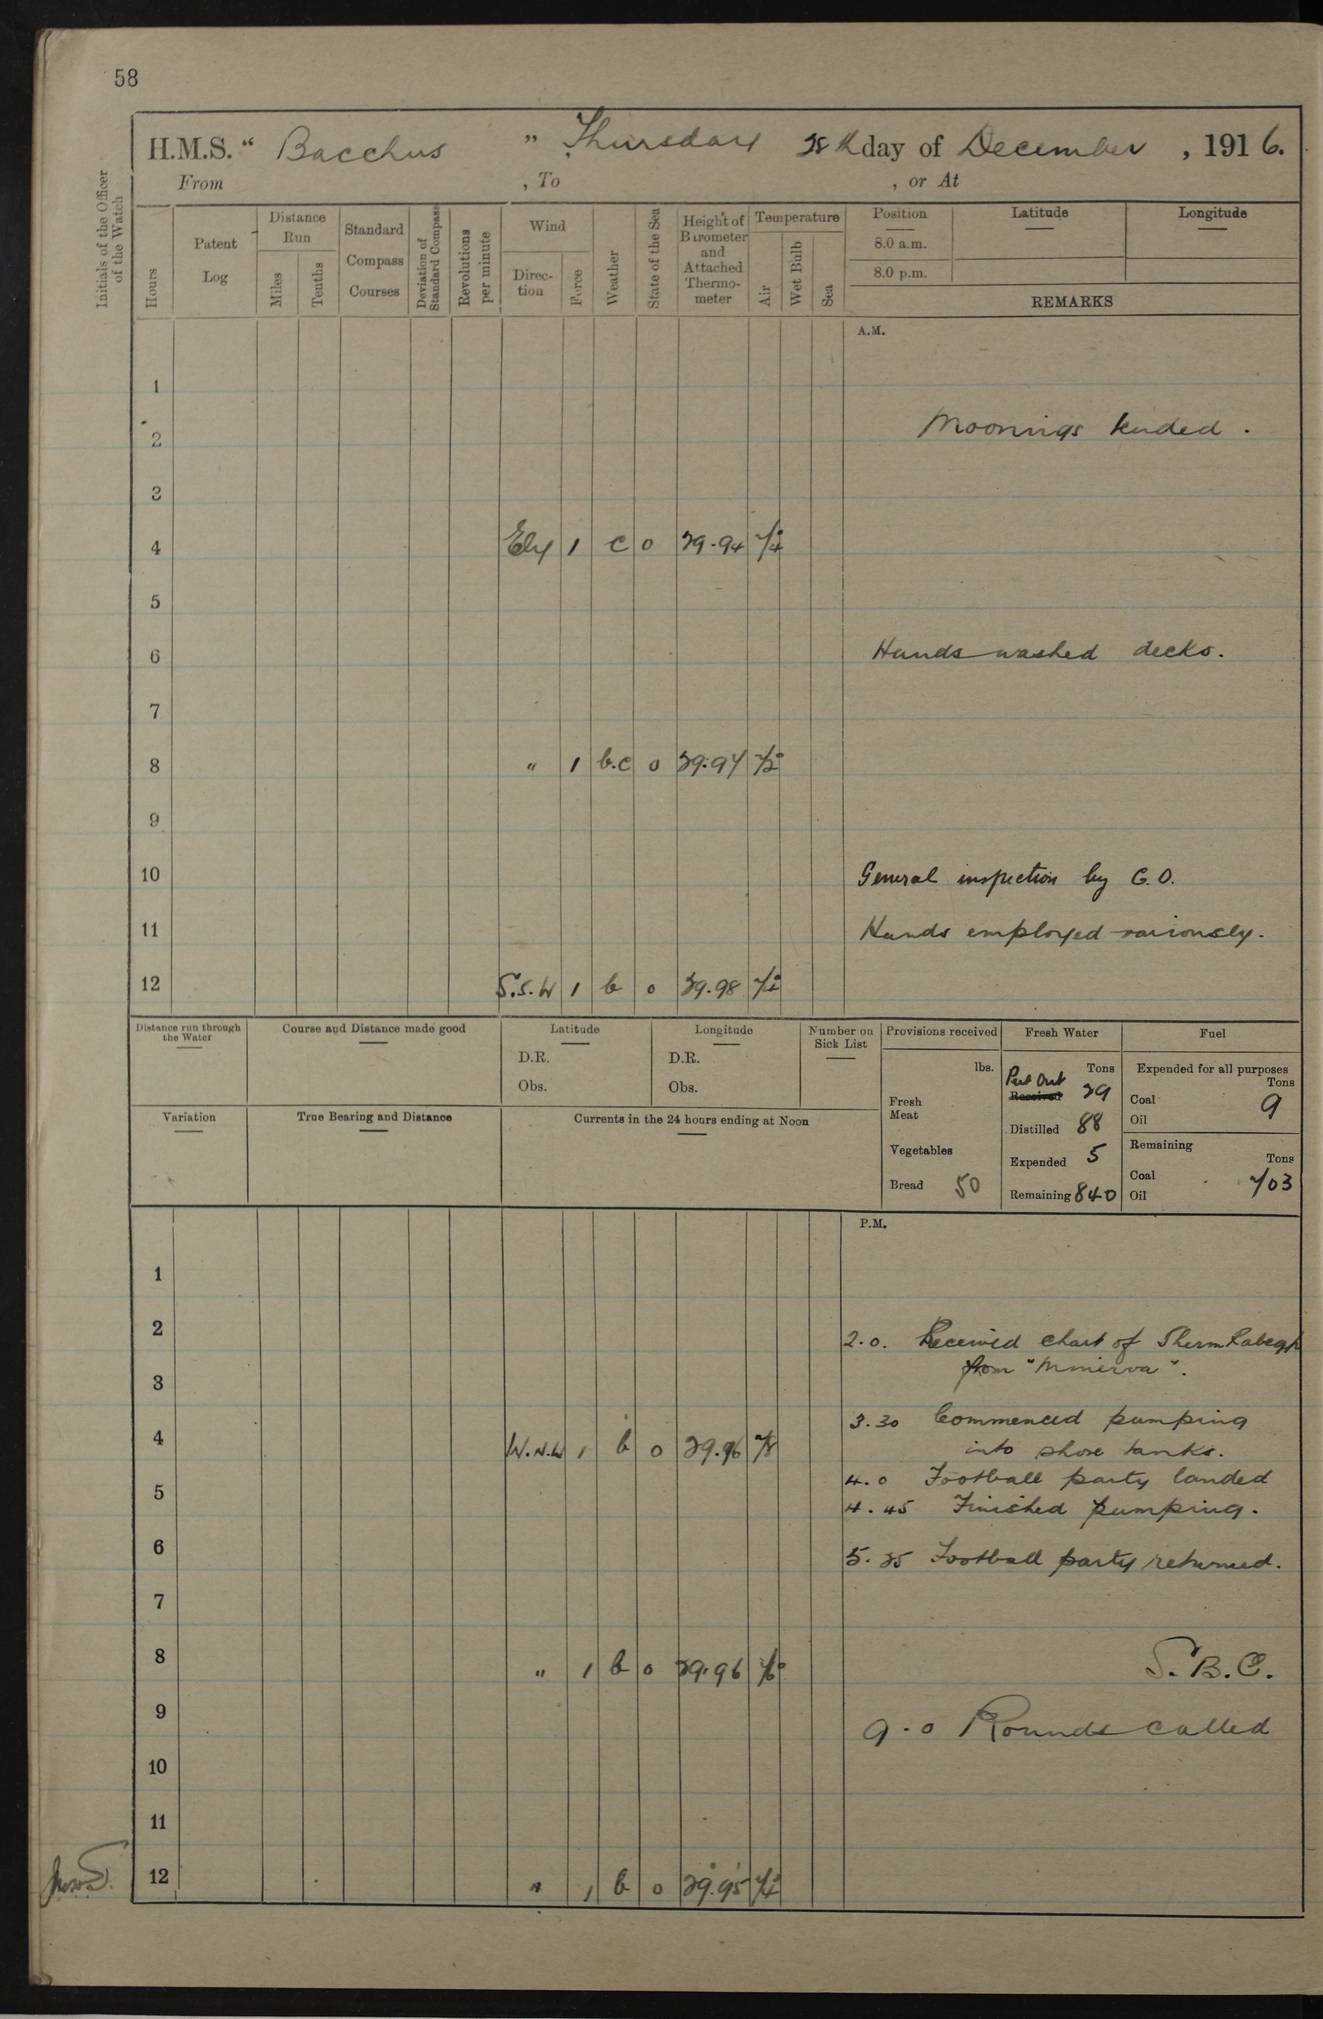 58
H.M.S. " Bacchus " Thursday 28th day of December, 1916.
From , To , or At
Initials of the Officer of the Watch
Hours
Patent Log
Distance Run
Miles
Tenths
Standard Compass Courses
Deviation of Standard Compass
Revolutions per minute
Wind
Direction
Force
Weather
State of the Sea
Height of Barometer and Attached Thermometer
Temperature
Air
Wet Bulb
Sea
Position Latitude Longitude
8.0 a.m.
8.0 p.m.
REMARKS
A.M.
1
2 Moorings tended.
3
4 Ely 1 c 0 29.94 74
5
6 Hands washed decks.
7
8 " 1 b.c 0 29.97 72
9
10 General inspection by C.O.
11 Hands employed variously.
12 S.S.W 1 b 0 29.98
Distance run through the Water
Course and Distance made good
Latitude
D.R.
Obs.
Longitude
D.R.
Obs.
Number on Sick List
Provisions received
lbs.
Fresh Meat
Vegetables
Bread 50
Fresh Water
Tons
Put Out Received 29
Distilled 88
Expended 5
Remaining 840
Fuel
Expended for all purposes
Tons
Coal 9
Oil
Remaining
Tons
Coal 703
Oil
Variation
True Bearing and Distance
Currents in the 24 hours ending at Noon
P.M.
1
2 2.0. Received chart of Sherm Rabegh
from "Minerva".
3
3.30 Commenced pumping
4 W.N.W 1 b 0 29.96 78 into shore tanks.
4.0 Football party landed
5 4.45 Finished pumping.
6 5.25 Football party returned.
7
8 " 1 b 0 29.96 S.B.C.
9 9.0 Rounds called
10
11
12 " 1 b 0 29.95 74